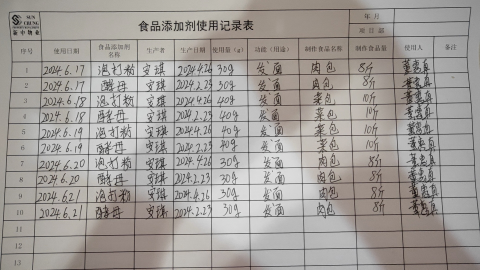 SUN CHUNG
新中物业
食品添加剂使用记录表
年 月
项目部
序号 使用日期 食品添加剂的名称 生产者 生产日期 使用量(g) 功能(用途) 制作食品名称 制作食品量 使用人 备注
1 2024.6.17 泡打粉 安琪 2024.4.26 30g 发面 肉包 8斤
2 2024.6.17 酵母 安琪 2024.2.23 30g 发面 肉包 8斤
3 2024.6.18 泡打粉 安琪 2024.4.26 40g 发面 菜包 10斤
4 2024.6.18 酵母 安琪 2024.2.23 40g 发面 菜包 10斤
5 2024.6.19 泡打粉 安琪 2024.4.26 40g 发面 菜包 10斤
6 2024.6.19 酵母 安琪 2024.2.23 40g 发面 菜包 10斤
7 2024.6.20 泡打粉 安琪 2024.4.26 30g 发面 肉包 8斤
8 2024.6.20 酵母 安琪 2024.2.23 30g 发面 肉包 8斤
9 2024.6.21 泡打粉 安琪 2024.4.26 30g 发面 肉包 8斤
10 2024.6.21 酵母 安琪 2024.2.23 30g 发面 肉包 8斤
11
12
13